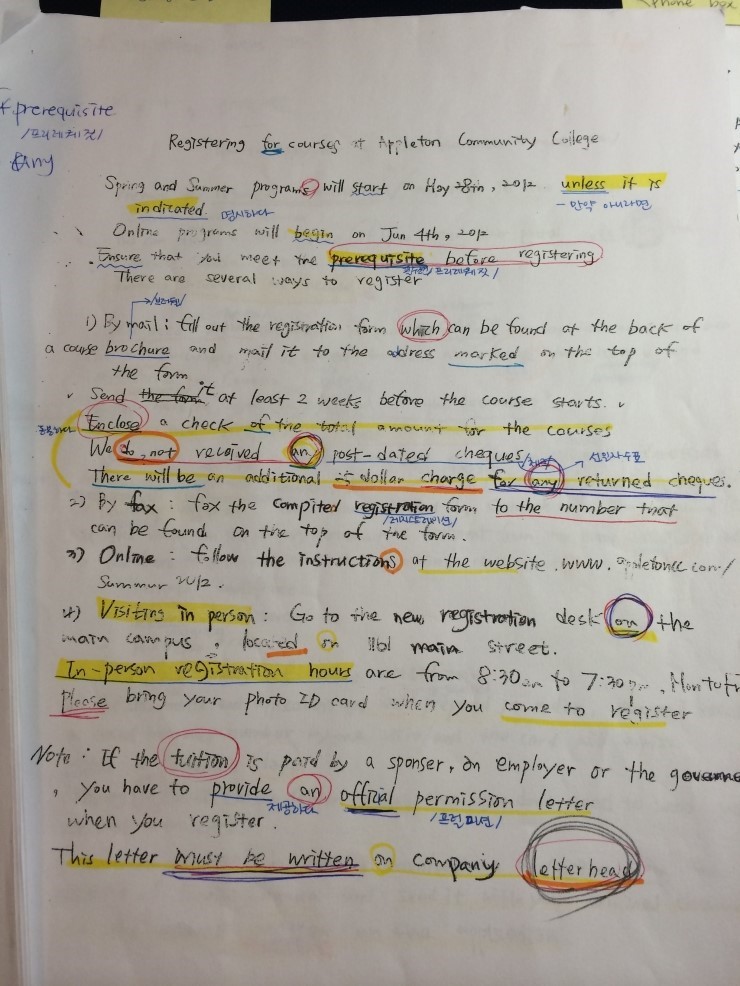 phone box
prerequisite
/프리레퀴짓/
any
Registering for courses at Appleton Community College
Spring and Summer programs will start on May 28th, 2012 unless it is
indicated. 명시하다 - 만약 아니라면
Online programs will begin on Jun 4th, 2012
Ensure that you meet the prerequisite before registering
/프리레퀴짓/
There are several ways to register
1) By mail : fill out the registration form which can be found at the back of
a course brochure and mail it to the address marked on the top of
the form
Send the form it at least 2 weeks before the course starts.
Enclose a check of the total amount for the courses
We do not received an post-dated cheques
There will be an additional 15 dollar charge for any returned cheques.
2) By fax : fax the compited registration form to the number that
can be found on the top of the form.
3) Online : follow the instructions at the website. www. appletoncc.com/
Summur 2012.
4) Visiting in person : Go to the new registration desk on the
main campus, located on 1161 main street.
In-person registration hours are from 8:30am to 7:30pm, Mon to Fri
Please bring your photo ID card when you come to register
Note : If the tuition is paid by a sponser, an employer or the governme
, you have to provide an official permission letter
제공하다
when you register.
This letter must be written on company letterhead